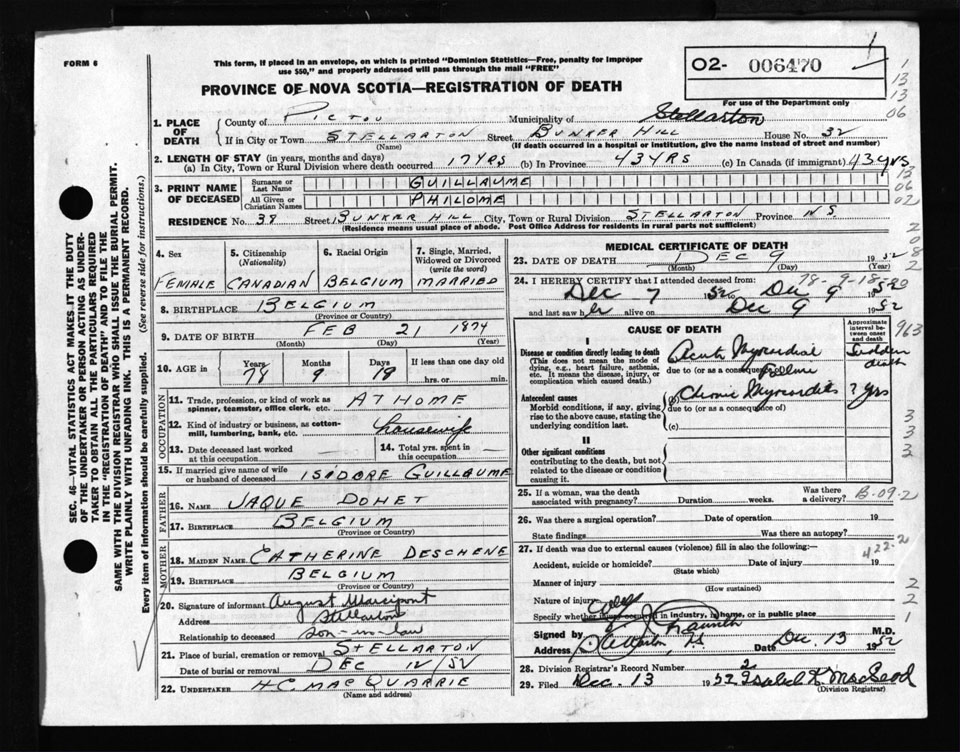 FORM 6
This form, if placed in an envelope, on which is printed "Dominion Statistics—Free, penalty for improper
use $50," and properly addressed will pass through the mail "FREE"
O2- 006470
1
PROVINCE OF NOVA SCOTIA—REGISTRATION OF DEATH
For use of the Department only
1. PLACE OF DEATH
County of PICTOU Municipality of Stellarton
If in City or Town STELLARTON Street BUNKER HILL House No. 32
(Name) (If death occurred in a hospital or institution, give the name instead of street and number)
2. LENGTH OF STAY (in years, months and days)
(a) In City, Town or Rural Division where death occurred 17 YRS (b) In Province 43 YRS (c) In Canada (if immigrant) 43 yrs
3. PRINT NAME OF DECEASED
Surname or Last Name GUILLAUME
All Given or Christian Names PHILOME
RESIDENCE No. 38 Street BUNKER HILL City, Town or Rural Division STELLARTON Province N S
(Residence means usual place of abode. Post Office Address for residents in rural parts not sufficient)
4. Sex
FEMALE
5. Citizenship (Nationality)
CANADIAN
6. Racial Origin
BELGIUM
7. Single, Married, Widowed or Divorced (write the word)
MARRIED
8. BIRTHPLACE BELGIUM
(Province or Country)
9. DATE OF BIRTH FEB 21 1874
(Month) (Day) (Year)
10. AGE in
Years 78 Months 9 Days 18 If less than one day old
hrs. or min.
OCCUPATION
11. Trade, profession, or kind of work as
spinner, teamster, office clerk, etc. AT HOME
12. Kind of industry or business, as cotton-
mill, lumbering, bank, etc. housewife
13. Date deceased last worked
at this occupation
14. Total yrs. spent in
this occupation
15. If married give name of wife
or husband of deceased ISADORE GUILLAUME
FATHER
16. NAME JAQUE DOHET
17. BIRTHPLACE BELGIUM
(Province or Country)
MOTHER
18. MAIDEN NAME CATHERINE DESCHENE
19. BIRTHPLACE BELGIUM
(Province or Country)
20. Signature of informant August
Address Stellarton
Relationship to deceased son-in-law
21. Place of burial, cremation or removal STELLARTON
Date of burial or removal DEC 12/52
22. UNDERTAKER H.C. MACQUARRIE
(Name and address)
MEDICAL CERTIFICATE OF DEATH
23. DATE OF DEATH DEC 9 1952
(Month) (Day) (Year)
24. I HEREBY CERTIFY that I attended deceased from:
Dec 7 1952 to Dec 9 1952
and last saw her alive on Dec 9 1952
CAUSE OF DEATH
Approximate interval between onset and death
I
Disease or condition directly leading to death
(This does not mean the mode of
dying, e.g., heart failure, asthenia,
etc. It means the disease, injury, or
complication which caused death.)
Acute Myocardial
due to (or as a consequence of)
Sudden death
Antecedent causes
Morbid conditions, if any, giving
rise to the above cause, stating the
underlying condition last.
Chronic Myocarditis
due to (or as a consequence of)
(c)
? yrs
II
Other significant conditions
contributing to the death, but not
related to the disease or condition
causing it.
25. If a woman, was the death
associated with pregnancy? Duration weeks. Was there a delivery? B-09-2
26. Was there a surgical operation? Date of operation 19
State findings Was there an autopsy?
27. If death was due to external causes (violence) fill in also the following:
422-2
Accident, suicide or homicide? Date of injury 19
(State which)
Manner of injury
(How sustained)
Nature of injury
Specify whether injury occurred in industry, in home, or in public place
Signed by M.D.
Address Stellarton, N.S. Date Dec. 13 1952
28. Division Registrar's Record Number
29. Filed Dec. 13 1952 Isabel K. MacLeod
(Division Registrar)
SEC. 46—VITAL STATISTICS ACT MAKES IT THE DUTY
OF THE UNDERTAKER OR PERSON ACTING AS UNDER-
TAKER TO OBTAIN ALL THE PARTICULARS REQUIRED
IN THE "REGISTRATION OF DEATH" AND TO FILE THE
SAME WITH THE DIVISION REGISTRAR WHO SHALL ISSUE THE BURIAL PERMIT.
WRITE PLAINLY WITH UNFADING INK. THIS IS A PERMANENT RECORD.
Every item of information should be carefully supplied. (See reverse side for instructions.)
1
13
13
06
13
06
02
2
0
8
2
963
3
3
3
2
2
1